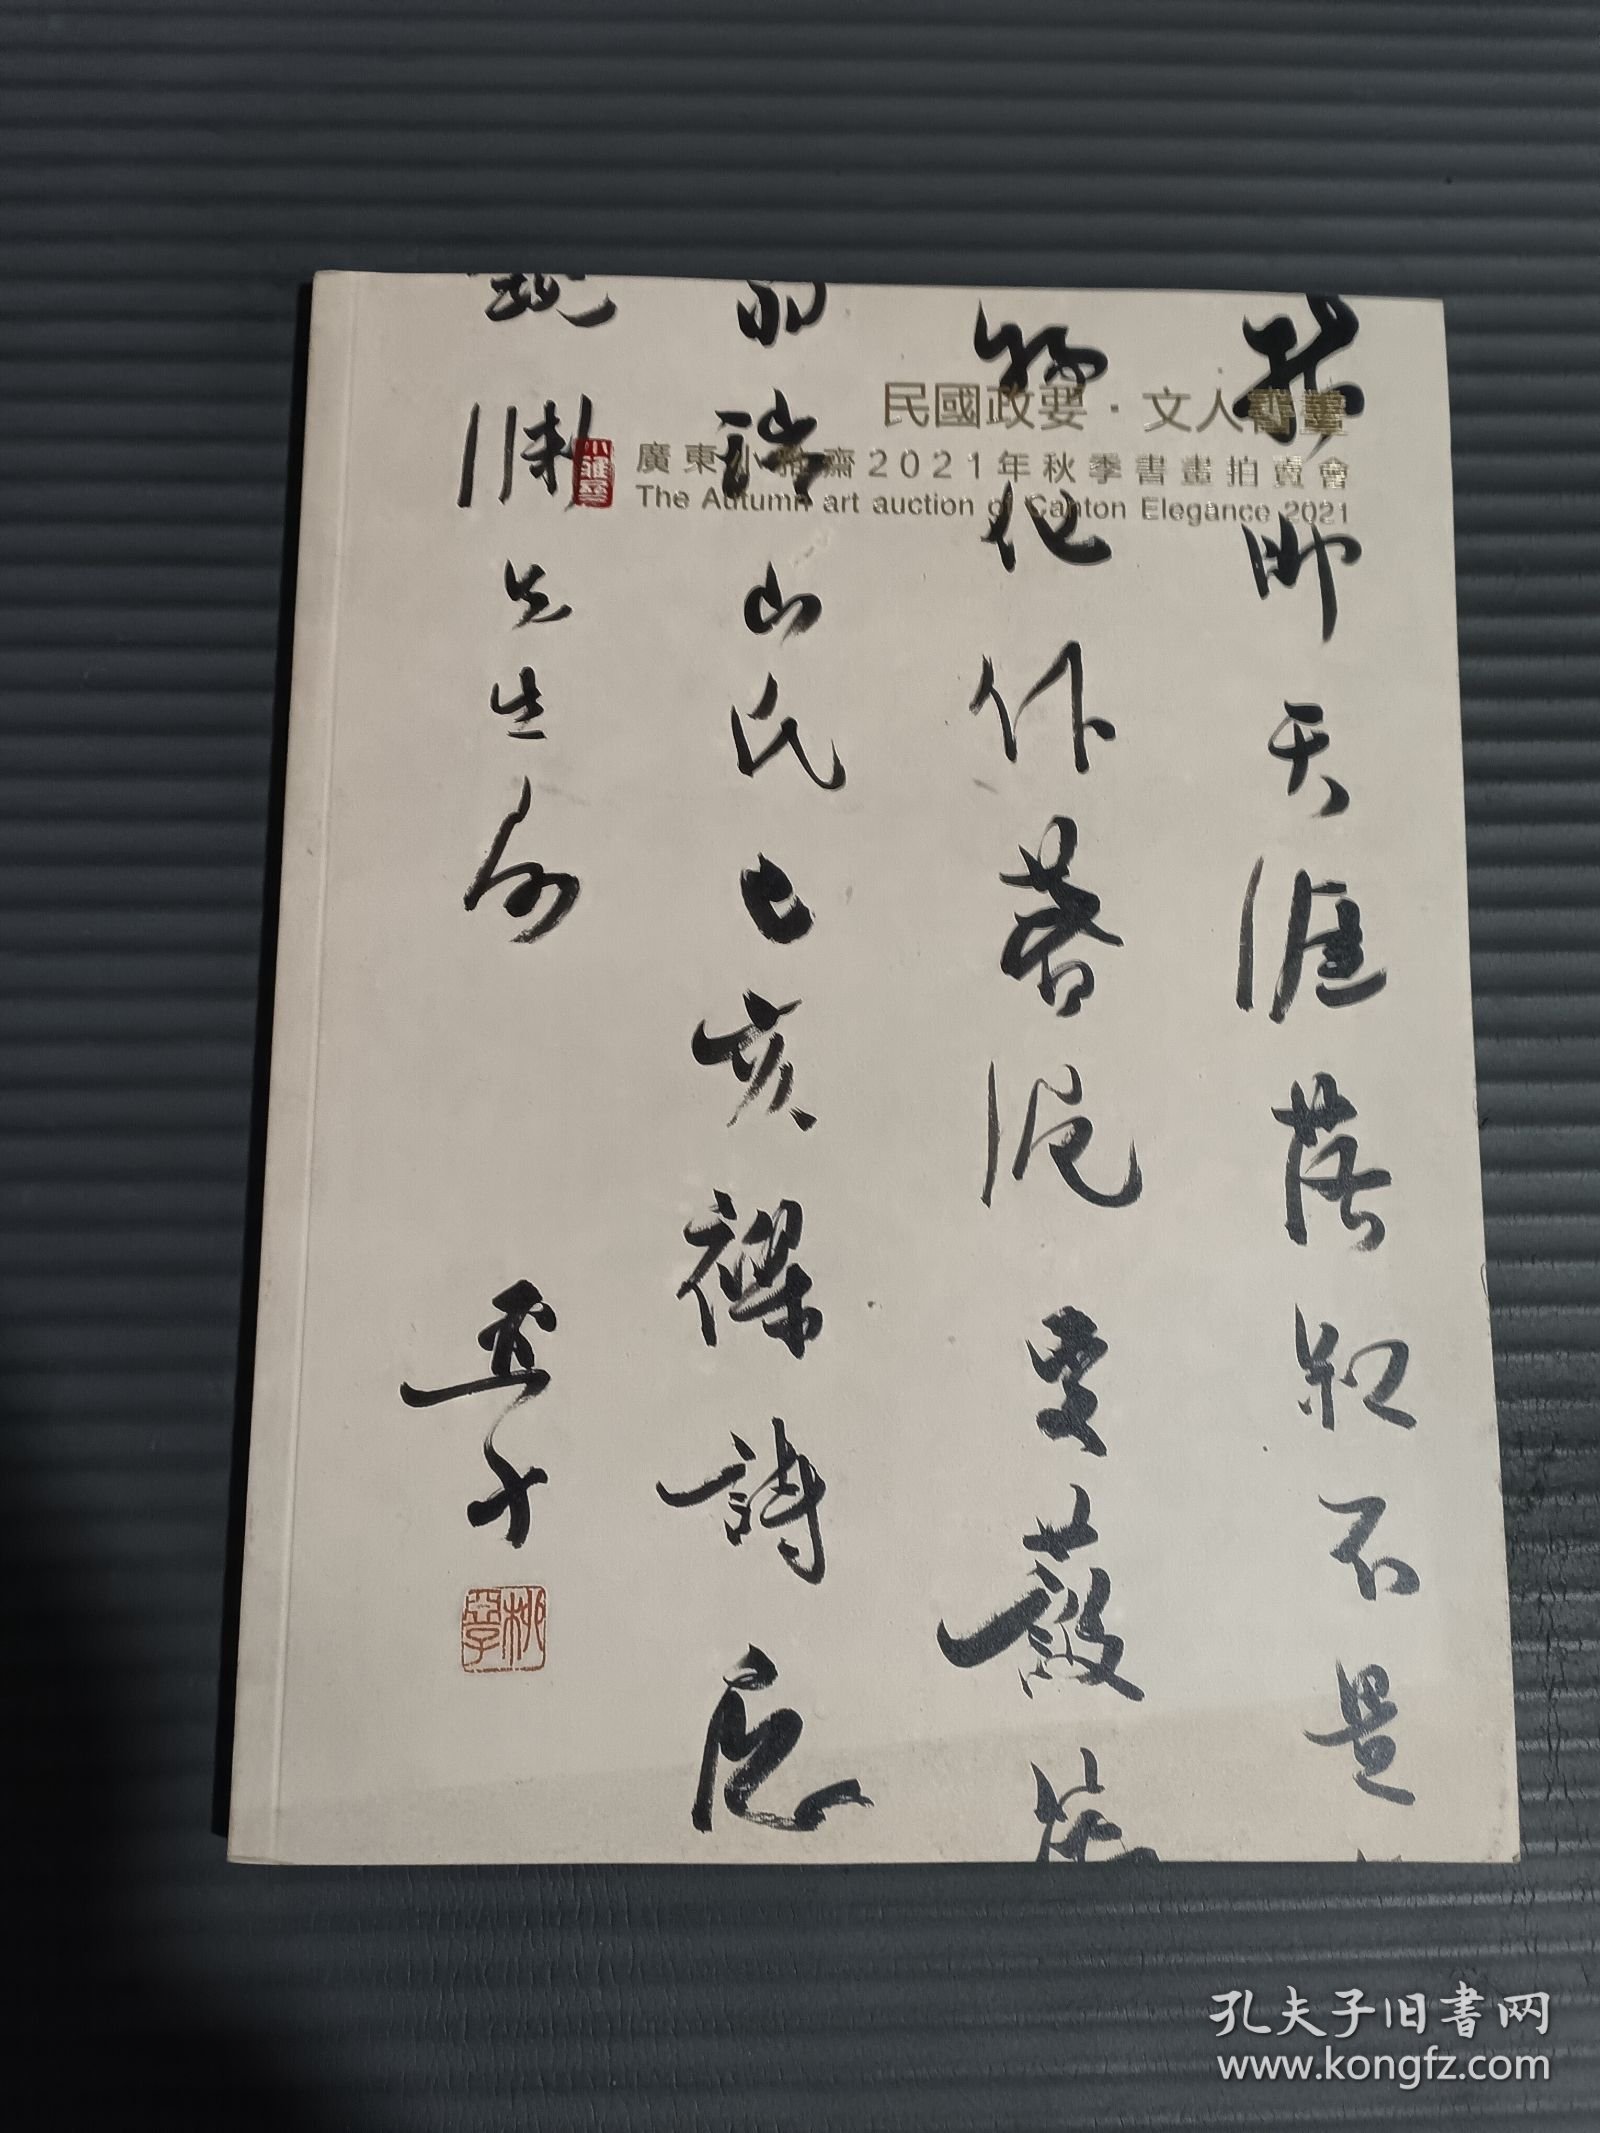 民國政要·文人書畫
廣東小雅齋2021年秋季書畫拍賣會
The Autumn art auction of Canton Elegance 2021
小雅齋
指即天涯落紅不是
物化作春泥更護花
羽琌山氏己亥襍詩應
先生命
亞子
柳亞子
孔夫子旧书网
www.kongfz.com